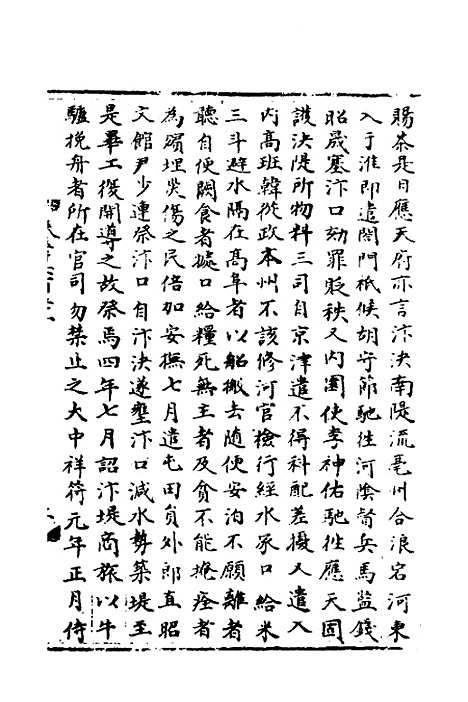 賜茶是日應天府亦言汴決南隄流亳州合浪宕河東
入于淮即遣閤門祗候胡守節馳往河陰督兵馬監錢
昭晟塞汴口劾罪貶秩又內園使李神佑馳往應天固
護決隄所物料三司自京津遣不得科配差擾又遣入
內高班韓從政本州不該修河官檢行經水眾口給米
三斗避水隔在高阜者以船搬去隨便安泊不願離者
聽自便闕食者據口給糧死無主者及貧不能掩瘞者
為殯埋災傷之民倍加安撫七月遣屯田員外郎直昭
文館尹少連祭汴口自汴決遂壅汴口減水勢築堤至
是畢工復開導之故祭焉四年七月詔汴堤商旅以牛
驢挽舟者所在官司勿禁止之大中祥符元年正月侍